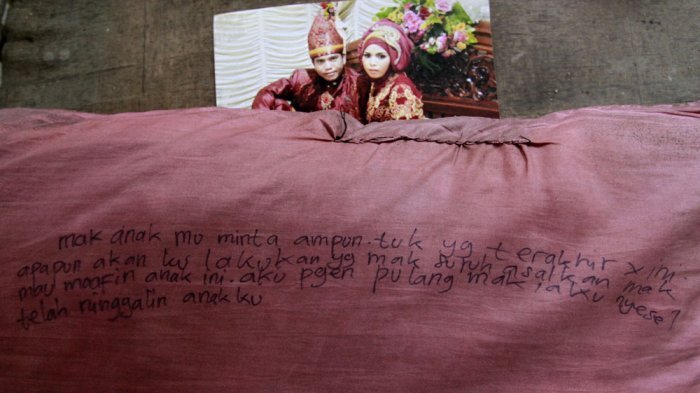 mak anak mu minta ampun. tuk yg terakhir x ini
apapun akan ku lakukan yg mak suruh asalkan mak
mau maafin anak ini. aku pgen pulang mak, aku nyesel
telah ninggalin anakku